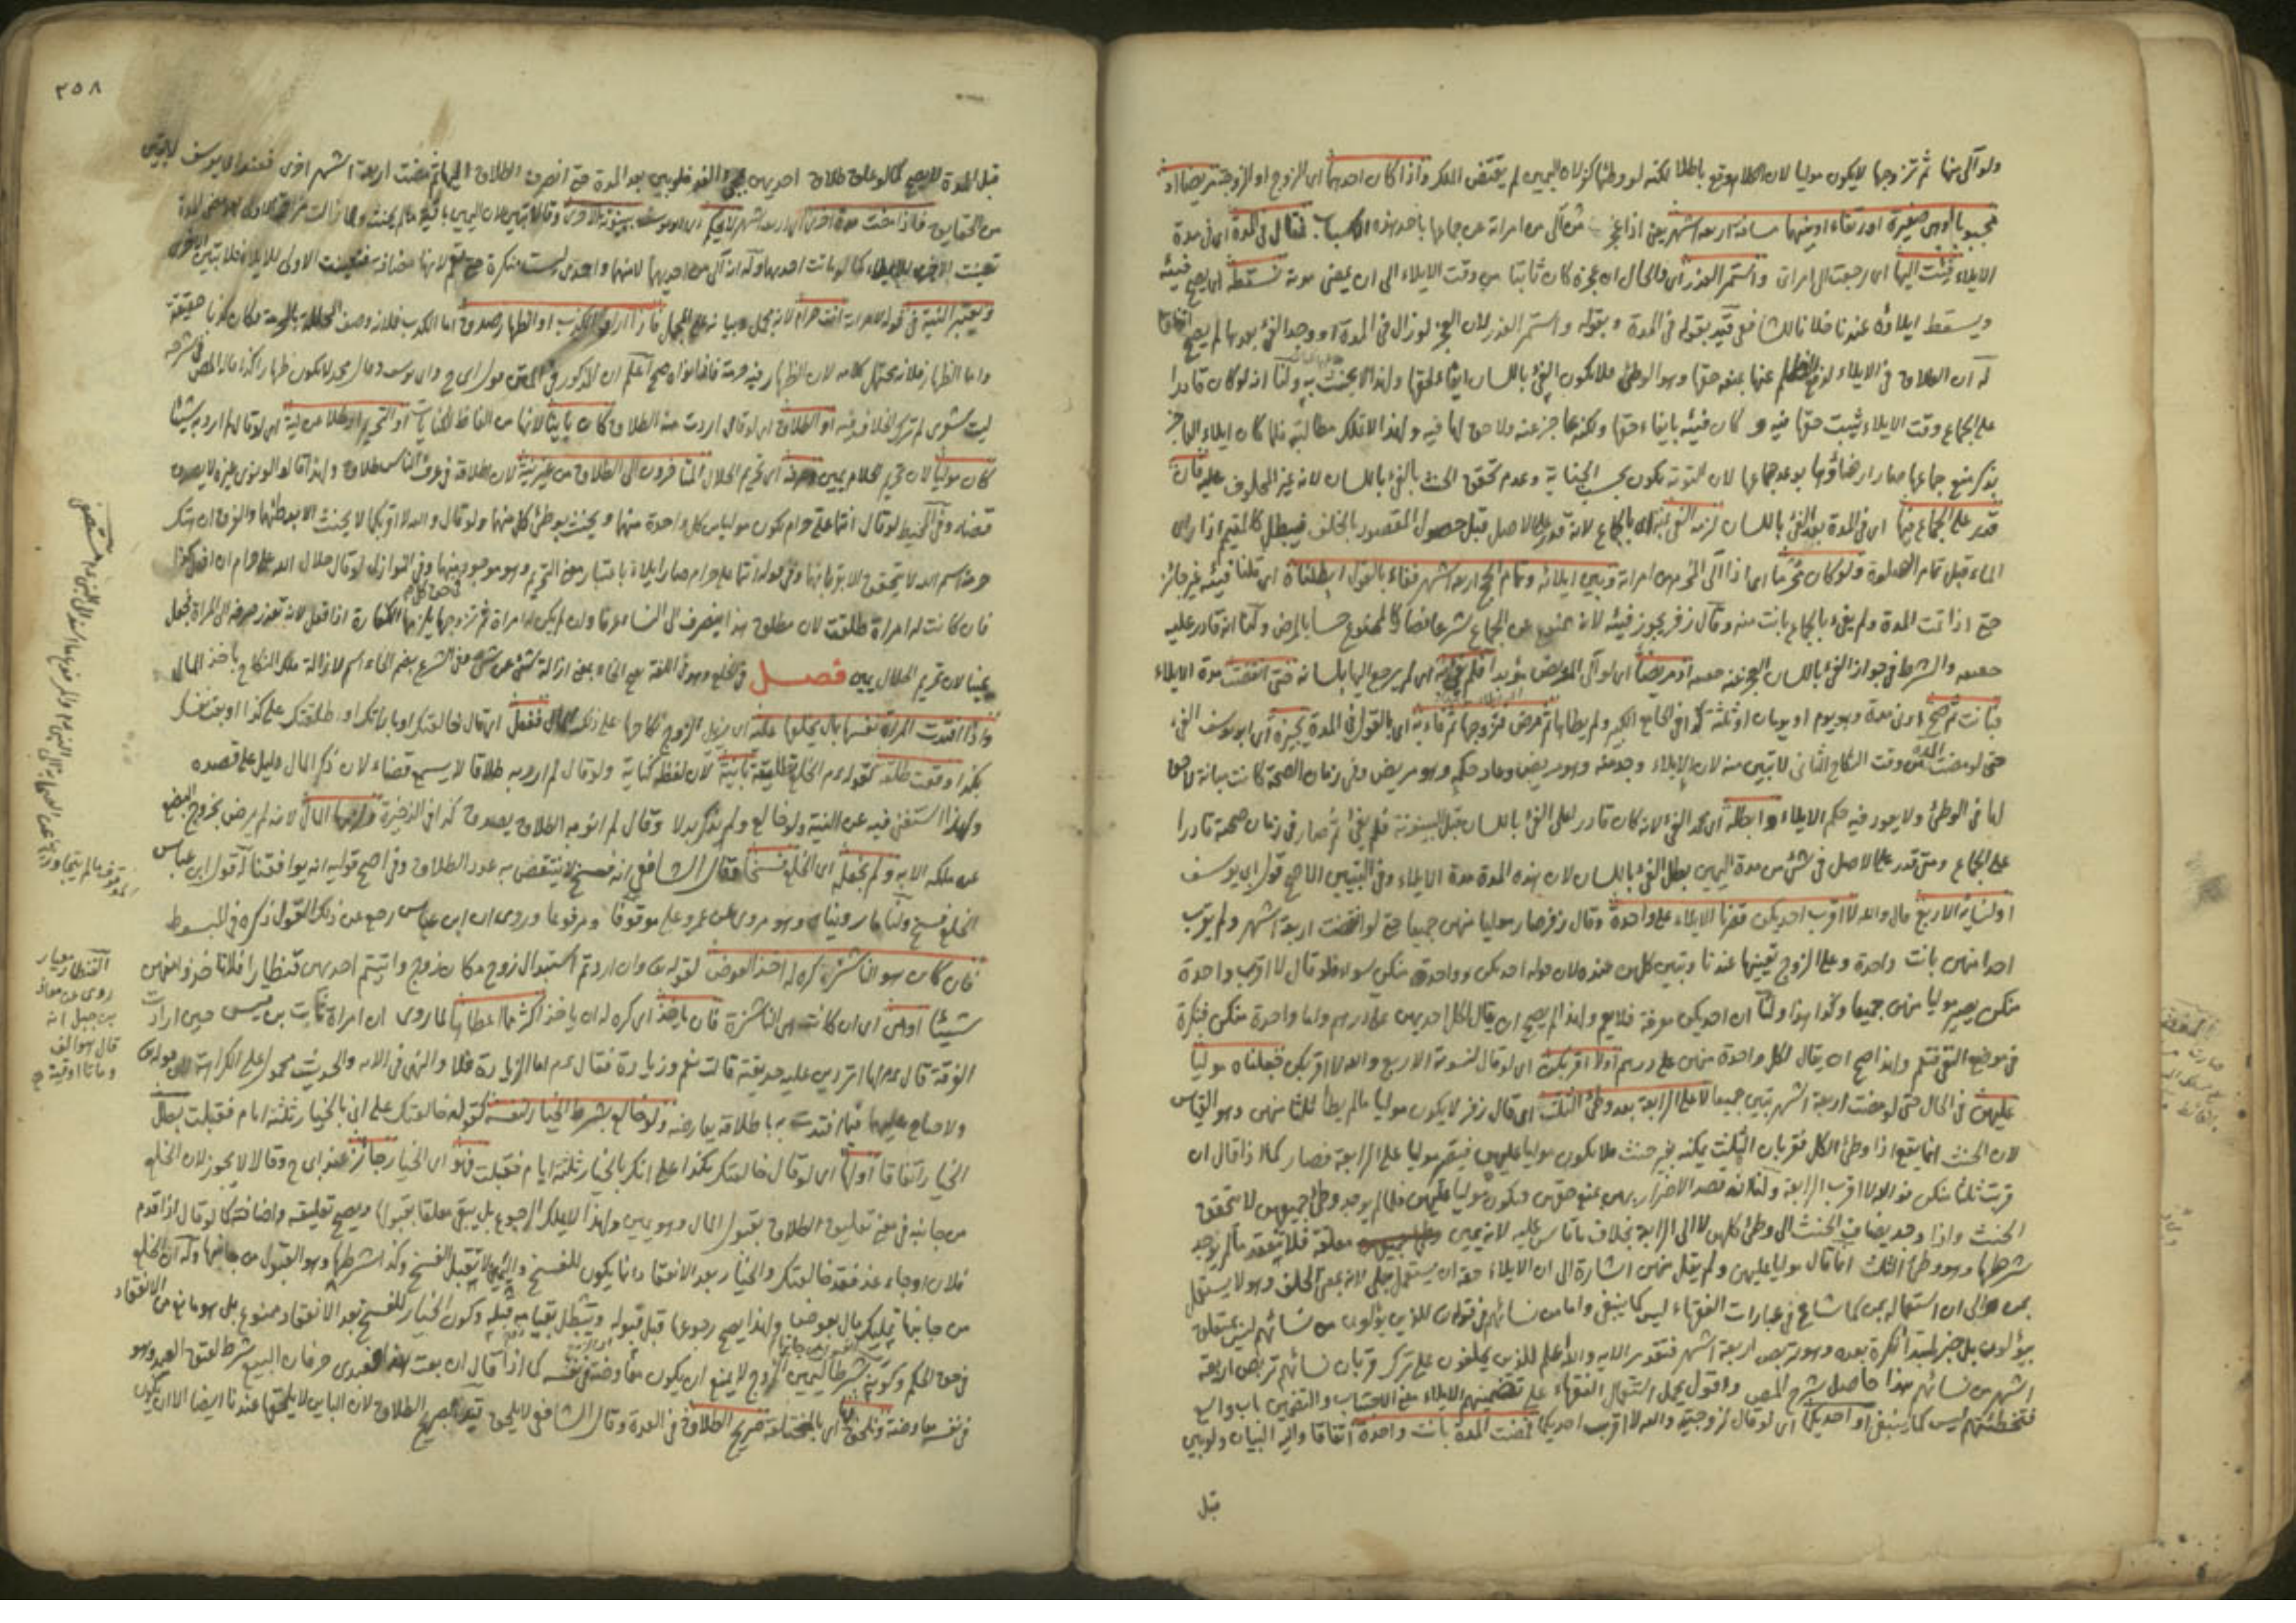 ولو آلى منها ثم تزوجها لا يكون موليا لان الكلام وقع باطلا لكنه لو وطئها كفر لان اليمين لم يقتض الملك واذا كان احدهما اى الزوج او الزوجة مريضا او
مجبوبا او هى صغيرة او رتقاء او بينهما مسافة اربعة اشهر يعنى اذا عجز من آلى من امرأته عن جماعها باحد هذه الاسباب فقال فى المدة اى فى مدة
الايلاء فئت اليها اى رجعت الى امرأتى واستمر العذر اى والحال ان عجزه كان ثابتا من وقت الايلاء الى ان يمضى مدته تسقط اى يصح فيئه
ويسقط ايلاؤه عندنا خلافا للشافعى قيد بقوله فى المدة وبقوله واستمر العذر لان العجز لو زال فى المدة او وجد الفئ بعدها لم يصح اتفاقا
له ان الطلاق فى الايلاء لدفع الظلم عنها بمنع حقها وهو الوطئ فلا يكون الفئ باللسان ايفاء لحقها ولهذا لا يحنث به ولنا انه لو كان قادرا
على الجماع وقت الايلاء ثبت حقها فيه و كان فيئه بايفاء حقها ولكنه عاجز عنه ولا حق لها فيه ولهذا لا تملك مطالبته فلما كان ايلاء العاجز
بذكر منع جماعها صار ارضاؤها بوعد جماعها لان التوبة تكون بحسب الجناية وعدم تحقق الحنث بالفئ باللسان لانه غير المحلوف عليه فان
قدر على الجماع فيها اى فى المدة بعد الفئ باللسان لزمه الفئ بالجماع لانه قدر على الاصل قبل حصول المقصود بالخلف فيبطل كالمتيمم اذا رأى
الماء قبل تمام الصلوة ولو كان محرما اى اذا آلى المحرم من امرأته وبين ايلائه وتمام الحج اربعة اشهر ففاء بالقول ابطلناه اى قلنا فيئه غير جائز
حتى اذا تمت المدة ولم يفئ بالجماع بانت منه وقال زفر يجوز فيئه لانه ممنوع عن الجماع شرعا فصار كالممنوع حسا بالمرض ولنا انه قادر عليه
حقيقة والشرط فى جواز الفئ باللسان العجز عنه حقيقة او مريضا اى لو آلى المريض مؤبدا فلم يفئ اى لم يرجع اليها بلسانه حتى انقضت مدة الايلاء
فبانت ثم صح ادنى مدة وهو يوم او يومان او ثلثة كذا فى الجامع الكبير ولم يطأها ثم مرض فتزوجها ثم فاء به اى بالقول فى المدة يجيزه اى ابو يوسف الفئ
حتى لو مضت المدة من وقت النكاح الثانى لا تبين منه لان الايلاء وجد منه وهو مريض وعاد حكمه وهو مريض وفى زمان الصحة كانت مبانة لا حق
لها فى الوطئ ولا يعود فيه حكم الايلاء وابطله اى محمد الفئ لانه كان قادرا على الفئ باللسان قبل البينونة فلم يفئ ثم صار فى زمان صحته قادرا
على الجماع ومتى قدر على الاصل فى شئ من مدة اليمين بطل الفئ باللسان لان هذه المدة مدة الايلاء وفى التبيين الاصح قول ابى يوسف
او لنسائه الاربع قال والله لا اقرب احديكن قصرنا الايلاء على واحدة وقال زفر صار موليا منهن جميعا حتى لو انقضت اربعة اشهر ولم يقرب
احدا منهن بانت واحدة وعلى الزوج تعيينها عندنا وتبين كلهن عنده لان قوله احديكن وواحدة منكن سواء فلو قال لا اقرب واحدة
منكن يصير موليا منهن جميعا وكذا هذا ولنا ان احديكن معرفة فلا يعم ولهذا لم يصح ان يقال لكل احديهن على درهم واما واحدة منكن فنكرة
فى موضع النفى فتعم ولهذا صح ان يقال لكل واحدة منهن على درهم او لا اقربكن اى لو قال لنسوته الاربع والله لا اقربكن فجعلناه موليا
عليهن فى الحال حتى لو مضت اربعة اشهر تبين جميعا لا على الرابعة بعد وطئ الثلث اى قال زفر لا يكون موليا ما لم يطأ ثلثا منهن وهو القياس
لان الحنث انما يقع اذا وطئ الكل فقربان الثلث يمكنه بغير حنث فلا يكون موليا عليهن فيصير موليا على الرابعة فصار كما اذا قال ان
قربت ثلثا منكن فوالله لا اقرب الرابعة ولنا انه قصد الاضرار بهن بمنع حقهن فيكون موليا عليهن فلما لم يوجد وطئ جميعهن لا يتحقق
الحنث واذا وجد يضاف الحنث الى وطئ كلهن لا الى الرابعة بخلاف ما قاس عليه لانه يمين معلقة فلا تنعقد ما لم يوجد
شرطها وهو وطئ الثلث انما قال موليا عليهن ولم يقل منهن اشارة الى ان الايلاء حقه ان يستعمل بعلى لانه بمعنى الحلف وهو لا يستعمل
بمن والى ان استعماله بمن كما شاع فى عبارات الفقهاء ليس كما ينبغى واما من نسائهم فى قوله تعالى للذين يؤلون من نسائهم ليس يتعلق
بيؤلون بل خبر لمبتدأ نكرة بعده وهو تربص اربعة اشهر فتقدير الاية والله اعلم للذين يحلفون على ترك قربان نسائهم تربص اربعة
اشهر من نسائهم هذا حاصل شرح المص واقول يحمل استعمال الفقهاء على تضمينهم الايلاء معنى الاجتناب والتضمين باب واسع
فتخطئتهم ليس كما ينبغى او احديكما اى لو قال لزوجتيه والله لا اقرب احديكما فمضت المدة بانت واحدة اتفاقا واليه البيان ولو بين
قبل
٣٥٨
قبل المدة لا يصح كما لو علق طلاق احديهن بمجئ الغد فلو بين بعد المدة حتى انصرف الطلاق اليها ثم مضت اربعة اشهر اخرى فعند ابى يوسف لا تبين
من الحقايق فاذا مضت مدة اخرى اى اربعة اشهر لا يحكم اى ابو يوسف ببينونة الاخرى وقالا تبين لان اليمين باقية ما لم يحنث
تعينت الاخرى للايلاء كما لو ماتت احديهما وله انه آلى من احديهما لا منهما واحدى ليست منكرة حتى تعم لانها مضافة فتعينت الاولى للايلاء فلا تبين الاخرى
وتعتبر النية فى قوله لامرأته انت حرام لانه مجمل وبيانه على المجمل فاذا اراد الكذب او الظهار صدق اما الكذب فلانه وصف المحللة بالحرمة فكان كذبا حقيقة
واما الظهار فلانه يحتمل كلامه لان الظهار فيه حرمة فاذا نواه صح اعلم ان المذكور فى المتن قول ابى ح وابى يوسف وقال محمد لا يكون ظهارا كذا قاله المص فى شرحه
او الطلاق اى لو قال اردت منه الطلاق كان بائنا لانها من الفاظ الكنايات او التحريم او طلاقا من نية اى لو قال لم ارد به شيئا
كان موليا لان تحريم الحلال يمين وصرفه اى تحريم الحلال المتأخرون الى الطلاق من غير نية لان اطلاقه فى عرف الناس طلاق ولهذا قالوا لو نوى غيره لا يصدق
قضاء وفى المحيط لو قال انتما على حرام يكون موليا من كل واحدة منهما ويحنث بوطئ كل منهما ولو قال والله لا اقربكما لا يحنث الا بوطئهما والفرق ان هتك
حرمة اسم الله لا يتحقق الا بقربانهما وفى قوله انتما على حرام صار ايلاء باعتبار معنى التحريم وهو موجود فيهما وفى النوازل لو قال حلال الله على حرام ان افعل كذا
فان كانت له امرأة طلقت لان مطلق هذا ينصرف الى النساء عرفا وان لم يكن له امرأة ثم تزوجها يلزمها الكفارة اذا فعل لانه تعذر صرفه الى المرأة فجعل
يمينا لان تحريم الحلال يمين فصل فى الخلع وهو فى اللغة بفتح الخاء بمعنى ازالة شئ عن شئ وفى الشرع بضم الخاء اسم لازالة ملك النكاح باخذ المال
واذا افتدت المرأة نفسها بمال يخلعها عليه اى يزيل الزوج نكاحها على ذلك المال ففعل اى قال خالعتك او بارأتك او طلقتك على كذا او بعت نفسك
بكذا وقعت طلقة كقوله عم الخلع تطليقة بائنة لان لفظه كناية ولو قال لم ارد به طلاقا لا يسمع قضاء لان ذكر المال دليل على قصده
ولهذا استغنى فيه عن النية ولو خالع ولم يذكر بدلا وقال لم انو به الطلاق يصدق كذا فى الذخيرة ولزمها المال لانه لم يرض بخروج البضع
عن ملكه الا به ولم يجعل اى الخلع فسخا فقال الشافعى انه فسخ لا ينتقص به عدد الطلاق وفى اصح قوليه انه يوافقنا له قول ابن عباس
الخلع فسخ ولنا ما رويناه وهو مروى عن عمر وعلى موقوفا ومرفوعا وروى ان ابن عباس رجع عن ذلك القول ذكره فى المبسوط
فان كان هو الناشز كره له اخذ العوض لقوله تعالى وان اردتم استبدال زوج مكان زوج واتيتم احديهن قنطارا فلا تأخذوا منهن
شيئا او هى اى ان كانت هى الناشزة فان ياخذ اى كره له ان ياخذ اكثر مما اعطاها لما روى ان امرأة ثابت بن قيس حين ارادت
الفرقة قال عم لها اتردين عليه حديقته قالت نعم وزيادة فقال عم اما الزيادة فلا والنهى فى الاية والحديث محمول على الكراهة لقوله تعالى
ولا جناح عليهما فيما افتدت به باطلاقه يعارضه ولو خالع بشرط الخيار لنفسه كقوله خالعتك على انى بالخيار ثلثة ايام فقبلت بطل
الخيار اتفاقا او لها اى لو قال خالعتك بكذا على انك بالخيار ثلثة ايام فقبلت فهو اى الخيار جائز عند ابى ح وقالا لا يجوز لان الخلع
من جانبه فى معنى تعليق الطلاق بقبول المال وهو يمين ولهذا لا يملك الرجوع بل يبقى معلقا بقبولها ويصح تعليقه واضافته كما لو قال اذا قدم
فلان او جاء غد فقد خالعتك والخيار بعد الانعقاد انما يكون للفسخ واليمين لا تقبل الفسخ وكذا شرطها وهو القبول من جانبها وله ان الخلع
من جانبها تمليك مال بعوض ولهذا يصح رجوعها قبل قبوله ويبطل بقيامه قبله وكون الخيار للفسخ بعد الانعقاد ممنوع بل هو مانع من الانعقاد
فى حق الحكم وكونه شرطا ليمين الزوج لا يمنع ان يكون معاوضة فى نفسه كما اذا قال ان بعت هذا العبدى حر فان البيع شرط لعتق العبد وهو
فى نفسه معاوضة ويلحق اى بالمختلعة صريح الطلاق فى العدة وقال الشافعى لا يلحق قيد بصريح الطلاق لان البائن لا يلحقها عندنا ايضا الا ان يكون
القنطار معيار
روى عن معاذ
بن جبل انه
قال هو الف
ومائتا اوقية